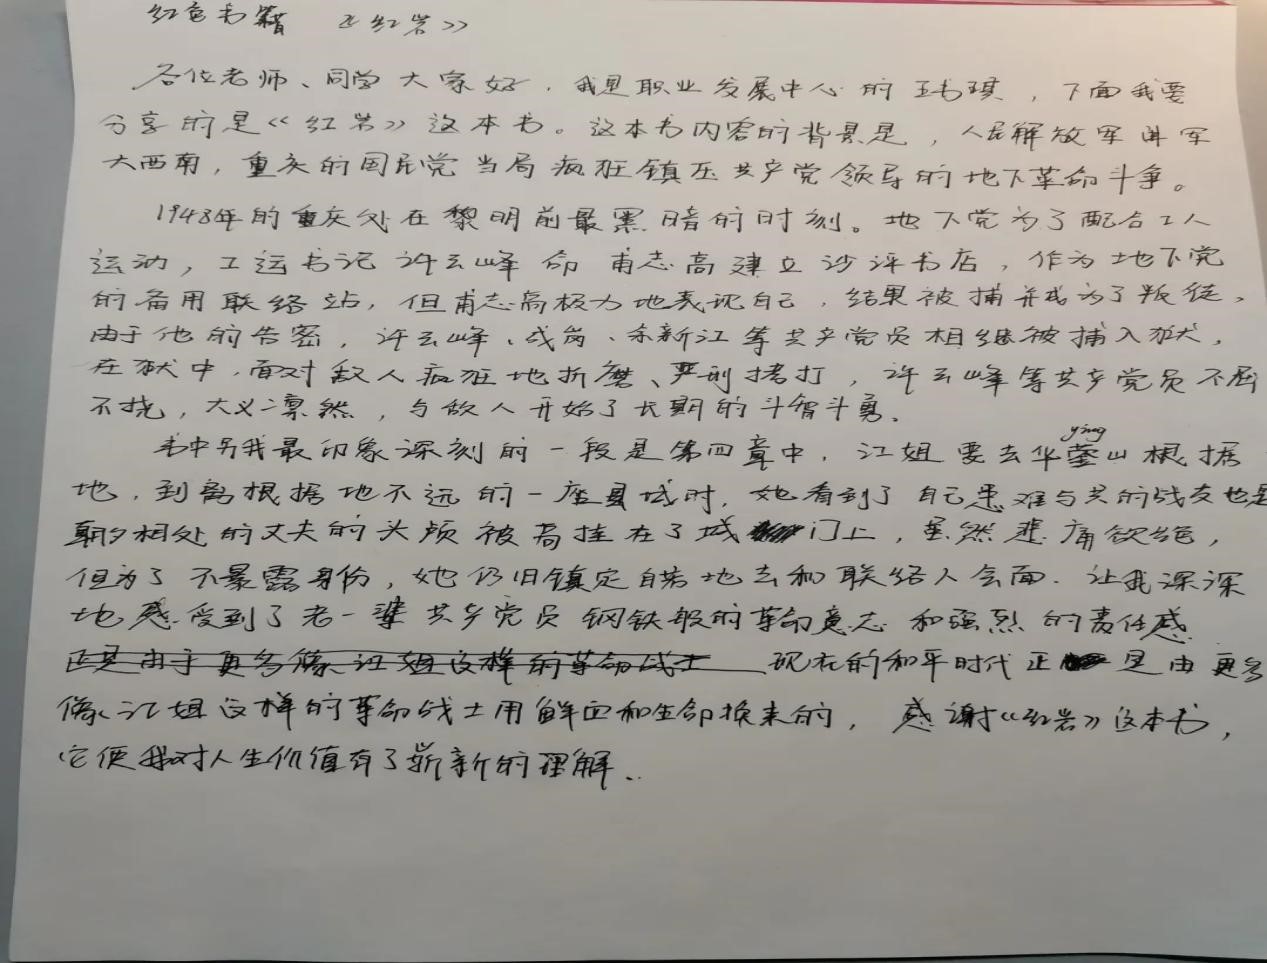 红色书籍 《红岩》
各位老师、同学大家好，我是职业发展中心的王书琪，下面我要
分享的是《红岩》这本书。这本书内容的背景是，人民解放军进军
大西南，重庆的国民党当局疯狂镇压共产党领导的地下革命斗争。
1948年的重庆处在黎明前最黑暗的时刻。地下党为了配合工人
运动，工运书记许云峰命甫志高建立沙坪书店，作为地下党
的备用联络站，但甫志高极力地表现自己，结果被捕并成为了叛徒，
由于他的告密，许云峰、成岗、余新江等共产党员相继被捕入狱，
在狱中，面对敌人疯狂地折磨、严刑拷打，许云峰等共产党员不屈
不挠，大义凛然，与敌人开始了长期的斗智斗勇。
ying
书中另我最印象深刻的一段是第四章中，江姐要去华蓥山根据
地，到离根据地不远的一座县城时，她看到了自己患难与共的战友也是
朝夕相处的丈夫的头颅被高挂在了城门上，虽然悲痛欲绝，
但为了不暴露身份，她仍旧镇定自若地去和联络人会面.让我深深
地感受到了老一辈共产党员钢铁般的革命意志和强烈的责任感
正是由于更多像江姐这样的革命战士 现在的和平时代正是由更多
像江姐这样的革命战士用鲜血和生命换来的，感谢《红岩》这本书，
它使我对人生价值有了崭新的理解.